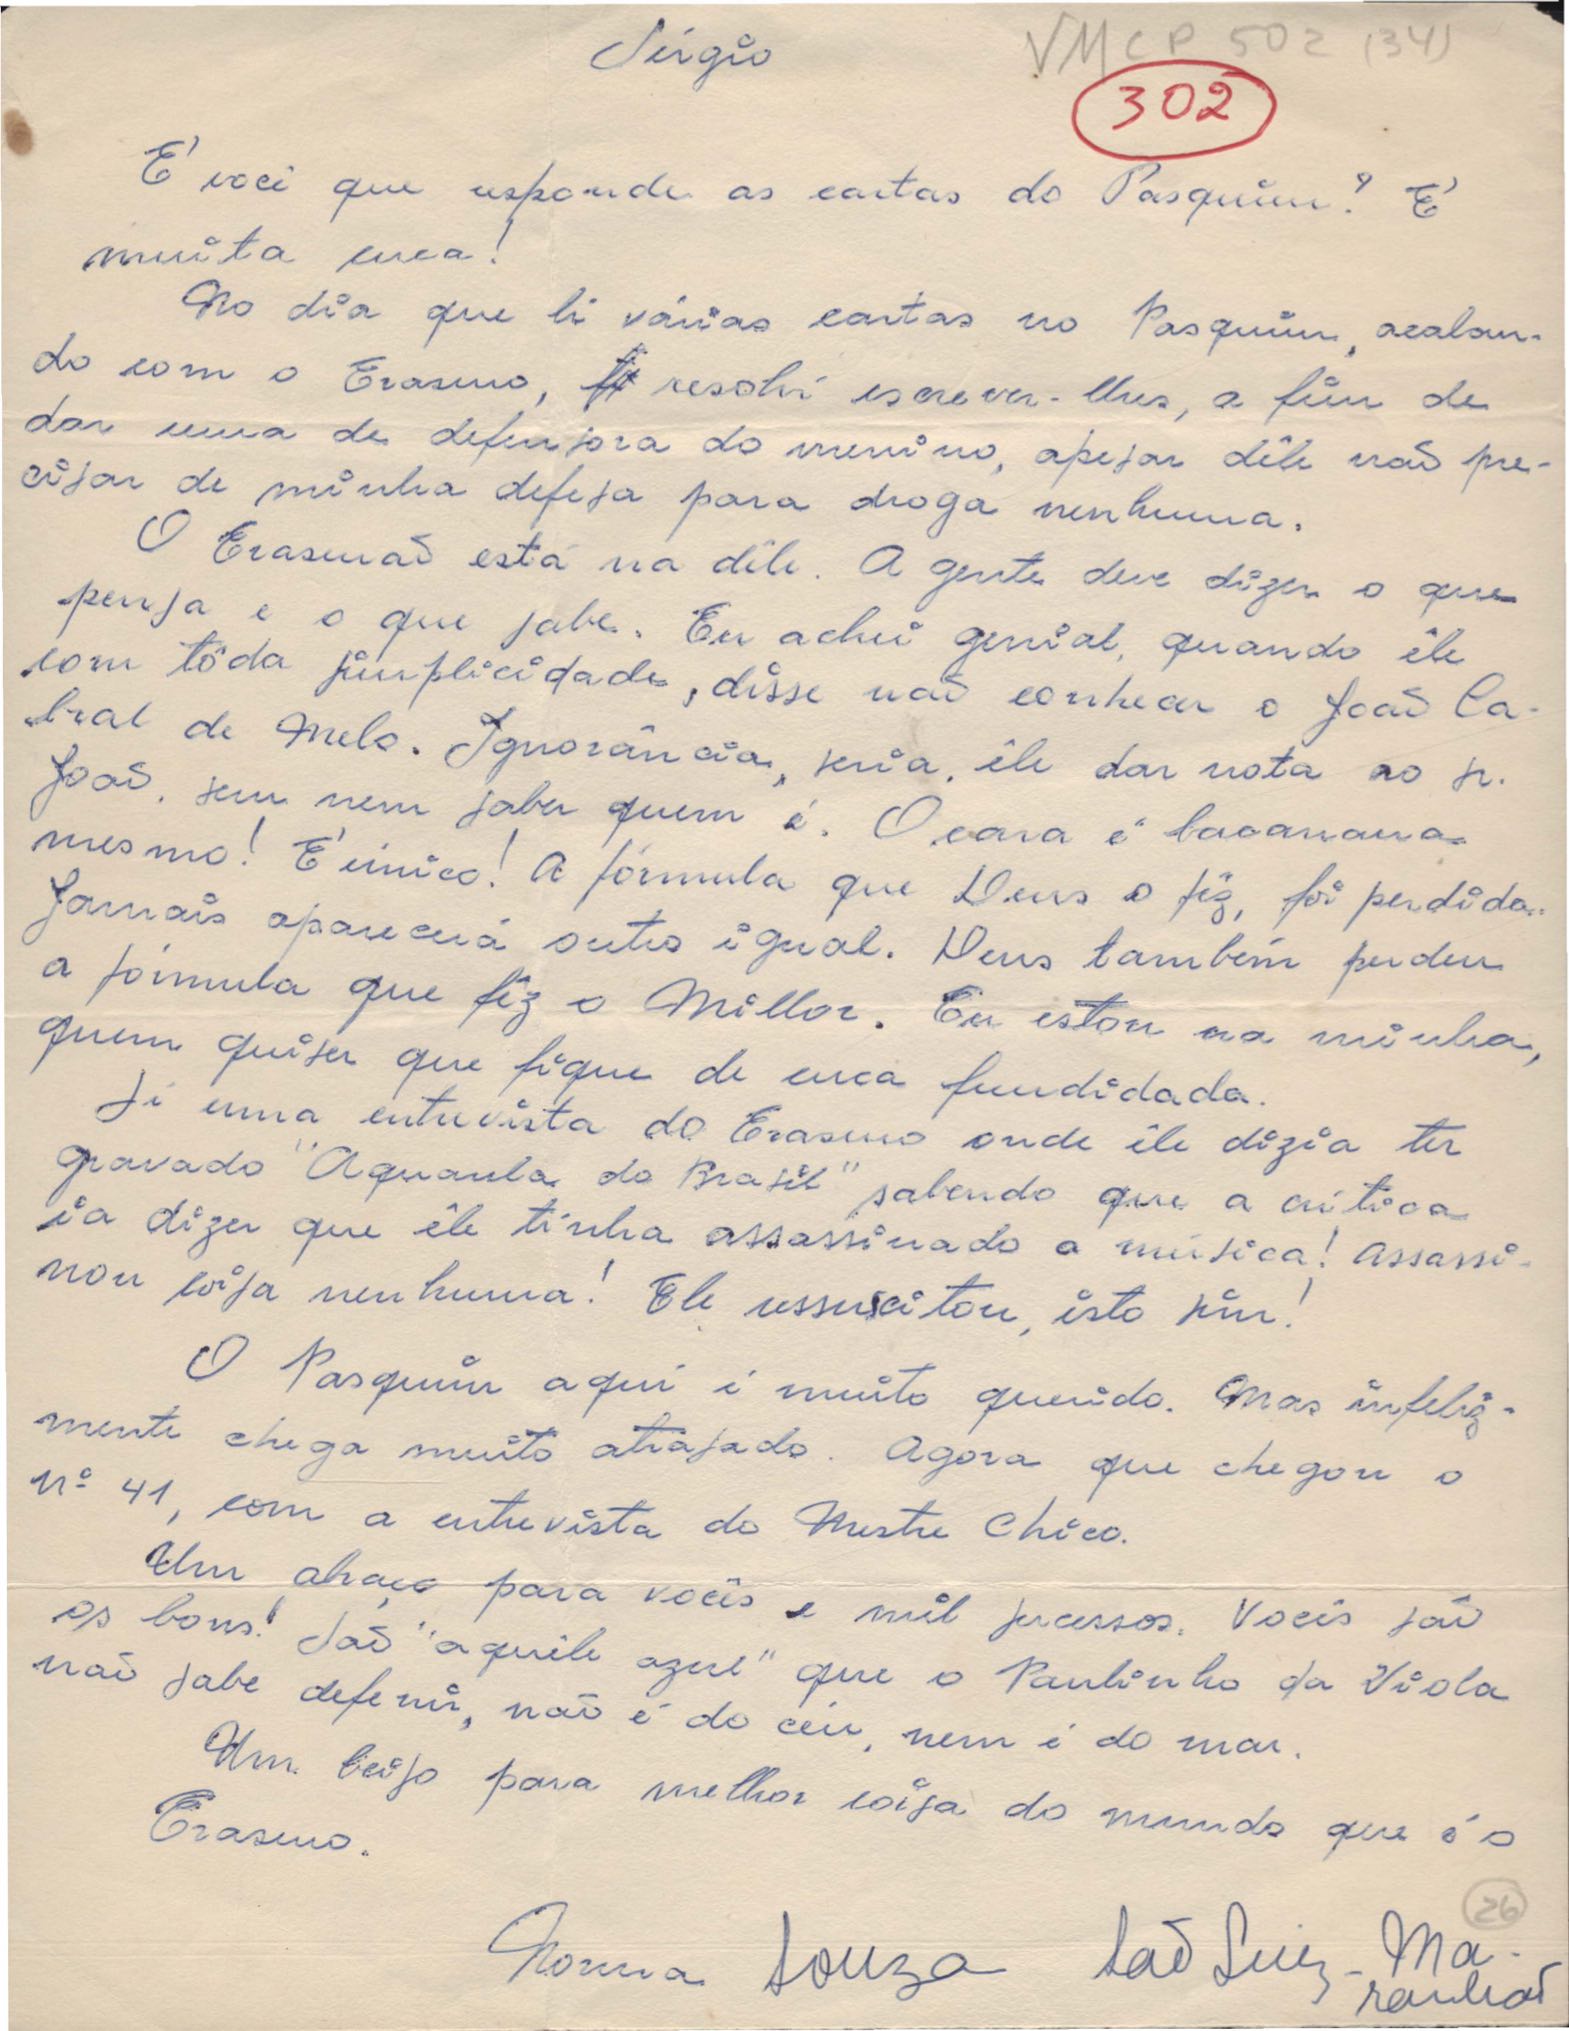 Sérgio
VMCP 502 (34)
302
É você que responde as cartas do Pasquim? É
muita cuca!
No dia que li várias cartas no Pasquim, acaban-
do com o Erasmo, resolvi escrever-lhes, a fim de
dar uma de defensora do menino, apesar dêle não pre-
cisar de minha defesa para droga nenhuma.
O Erasmão está na dêle. A gente deve dizer o que
pensa e o que sabe. Eu achei genial, quando êle
com tôda simplicidade, disse não conhecer o João Ca-
bral de Melo. Ignorância, seria, êle dar nota ao sr.
João, sem nem saber quem é. O cara é bacanana
mesmo! É único! A fórmula que Deus o fêz, foi perdida.
Jamais aparecerá outro igual. Deus também perdeu
a fórmula que fêz o Millor. Eu estou na minha,
quem quiser que fique de cuca fundidada.
Li uma entrevista do Erasmo onde êle dizia ter
gravado "Aquarela do Brasil" sabendo que a crítica
ia dizer que êle tinha assassinado a música! Assassi-
nou coisa nenhuma! Ele ressuscitou, isto sim!
O Pasquim aqui é muito querido. Mas infeliz-
mente chega muito atrasado. Agora que chegou o
nº 41, com a entrevista do Mestre Chico.
Um abraço para vocês e mil sucessos. Vocês são
os bons! São "aquêle azul" que o Paulinho da Viola
não sabe defenir, não é do céu, nem é do mar.
Um beijo para melhor coisa do mundo que é o
Erasmo.
26
Norma Souza São Luiz - Ma-
ranhão